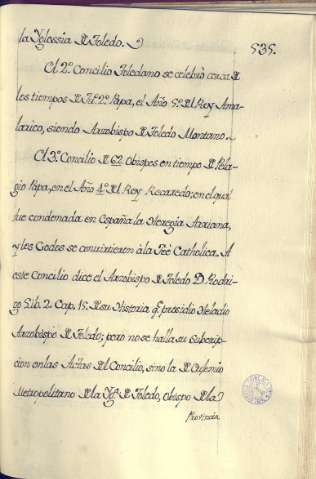 la Yglessia de Toledo.
535.
El 2º Concilio Toledano se celebró cerca de
los tiempos de Felº 2º Papa, el Año 5º del Rey Ama-
larico, siendo Arzobispo de Toledo Montano.
El 3º Concilio de 62 Obispos en tiempo de Pela-
gio Papa, en el Año 4º del Rey Recaredo: en el qual
fue condemnada en España la Heregia Arriana,
y los Godos se convirtieron à la Feè Catholica. A
este Concilio dice el Arzobispo de Toledo D. Rodri-
go Lib. 2. Cap. 15. de su Historia q̃ presidio Heladio
Arzobispo de Toledo; pero no se halla su Subscrip-
cion en las Actas del Concilio, sino la de Eufemio
Metropolitano de la Ygª de Toledo, Obispo de la
Provincia